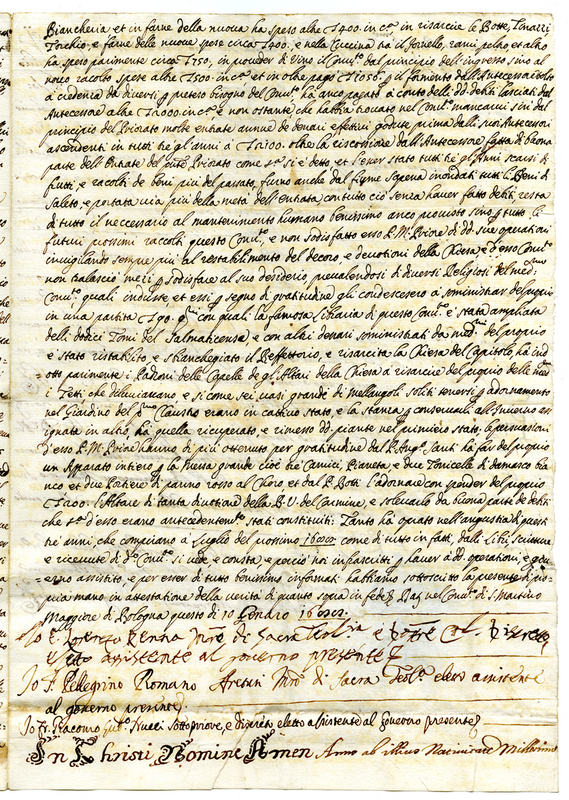 Biancheria et in farne della nuova ha speso altre £400. in c.ª in risarcire le Botte, Tinazzi
Torchio, e farne delle nuove spese circa £400. e nella Cuccina tra il fornello, rami peltri et altro
ha speso parimente circa £750, in proveder di Vino il Conv.to dal principio del ingresso sino al
novo racolto spese altre £500. in c.ª et in oltre pagò £1056. p il formento dell'Antecessore tolto
à credenza da diversi p preteso bisogno del Conv.to hà anco pagato à conto delli dd. debiti lasciati dal
Antecessore altre £1000. in c.ª e non ostante che habbia trovato nel Conv.to mancarvi sin dal
principio del Priorato molte entrate annue de denari effettivi godute prima dalli suoi Antecessori
ascendenti in tutti tre gli anni à £2100. oltre la riscossione dall'Antecessore fatta di buona
parte dell'Entrate del Priorato come s.ª si è detto, et l'esser stato tutti tre gli Anni scarsi di
frutti, e racolti de beni più del passato, furno anche dal fiume inondati tutti li Beni di
Saleto, e portata via più della metà dell'entrata, con tutto ciò senza haver fatto debiti, resta
di tutto il neccessario al mantenimento humano benissimo anco provisto sino p tutto li
futuri prossimi raccolti questo Conv.to, e non sodisfatto esso P. M. Priore di dd. sue operationi
invigilando sempre più al restabilimento del decoro, e devotioni della Chiesa, e d'esso Conv.to
non tralasciò mezi p sodisfare al suo desiderio, prevalendosi di diversi Religiosi del med.mo
Conv.to quali indusse et essi p segno di gratitudine gli condescesero à somministrar del proprio
in una partita £90. con quali la famosa Libraria di questo Conv.to è stata ampliata
delli dodici Tomi del Salmaticense, e con altri denari somministrati da med.mi del proprio
è stato ristabilito e sbianchegiato il Reffettorio, e risarcita la Chiesa del Capitolo, ha ind
otto parimente i Padroni delle Capelle de gli Altari della Chiesa à risarcire del proprio delle
i Tetti che diluviavano, e si come sei vasi grande di mellangoli soliti tenersi p adornamento
nel Giardino del p.mo Claustro erano in cattivo stato, e la stanza p conservarli all'Inverno ass
ignata in altro, ha quella ricuperato, e rimesso dd. piante nel primiero stato, le persuasioni
d'esso P. M. Priore hanno di più ottenuto per gratitudine dal P. Aug.º Santi ha far del proprio
un Aparato intiero p la Messa grande cioè tre Camici, Pianeta, e due Tonicelle di damasco bia
nco et due Portiere di panno rosso al Choro et dal P. Boti l'adornare con spender del proprio
£200. l'Altare di tanta divotione della B. V. del Carmine, e sollevarlo da buona parte de debiti
che s.ª d'esso erano antecedentem.te stati constituiti: Tanto ha oprato nell'angustia di questi
tre anni, che compierano à Luglio del prossimo come di tutto in fatti, dalli Libri, Scritture
e ricevute di d.to Conv.to si vede, e consta, e perciò noi infrascritti p haver à dd. operationi, e gov
erno assistito, e per esser di tutto benissimo informati habbiamo sottoscritto la presente di pro
pria mano in attestatione della verità di quanto sopra in fede p. Dat. nel Conv.to di S. Martino
Maggiore di Bologna questo di 10 Genaro
Io F. Lorenzo Penna Mro. di Sacra Teol.ia e
eletto assistente al governo presente
Io F. Pellegrino Romano Aretusi Mro. di Sacra Teol.ª eletto assistente
al governo presente
Io Fr. Giacomo Nucci Sottopriore, e discreto eletto assistente al governo presente
In Christi Nomine Amen Anno ab illius Nativitate Millesimo